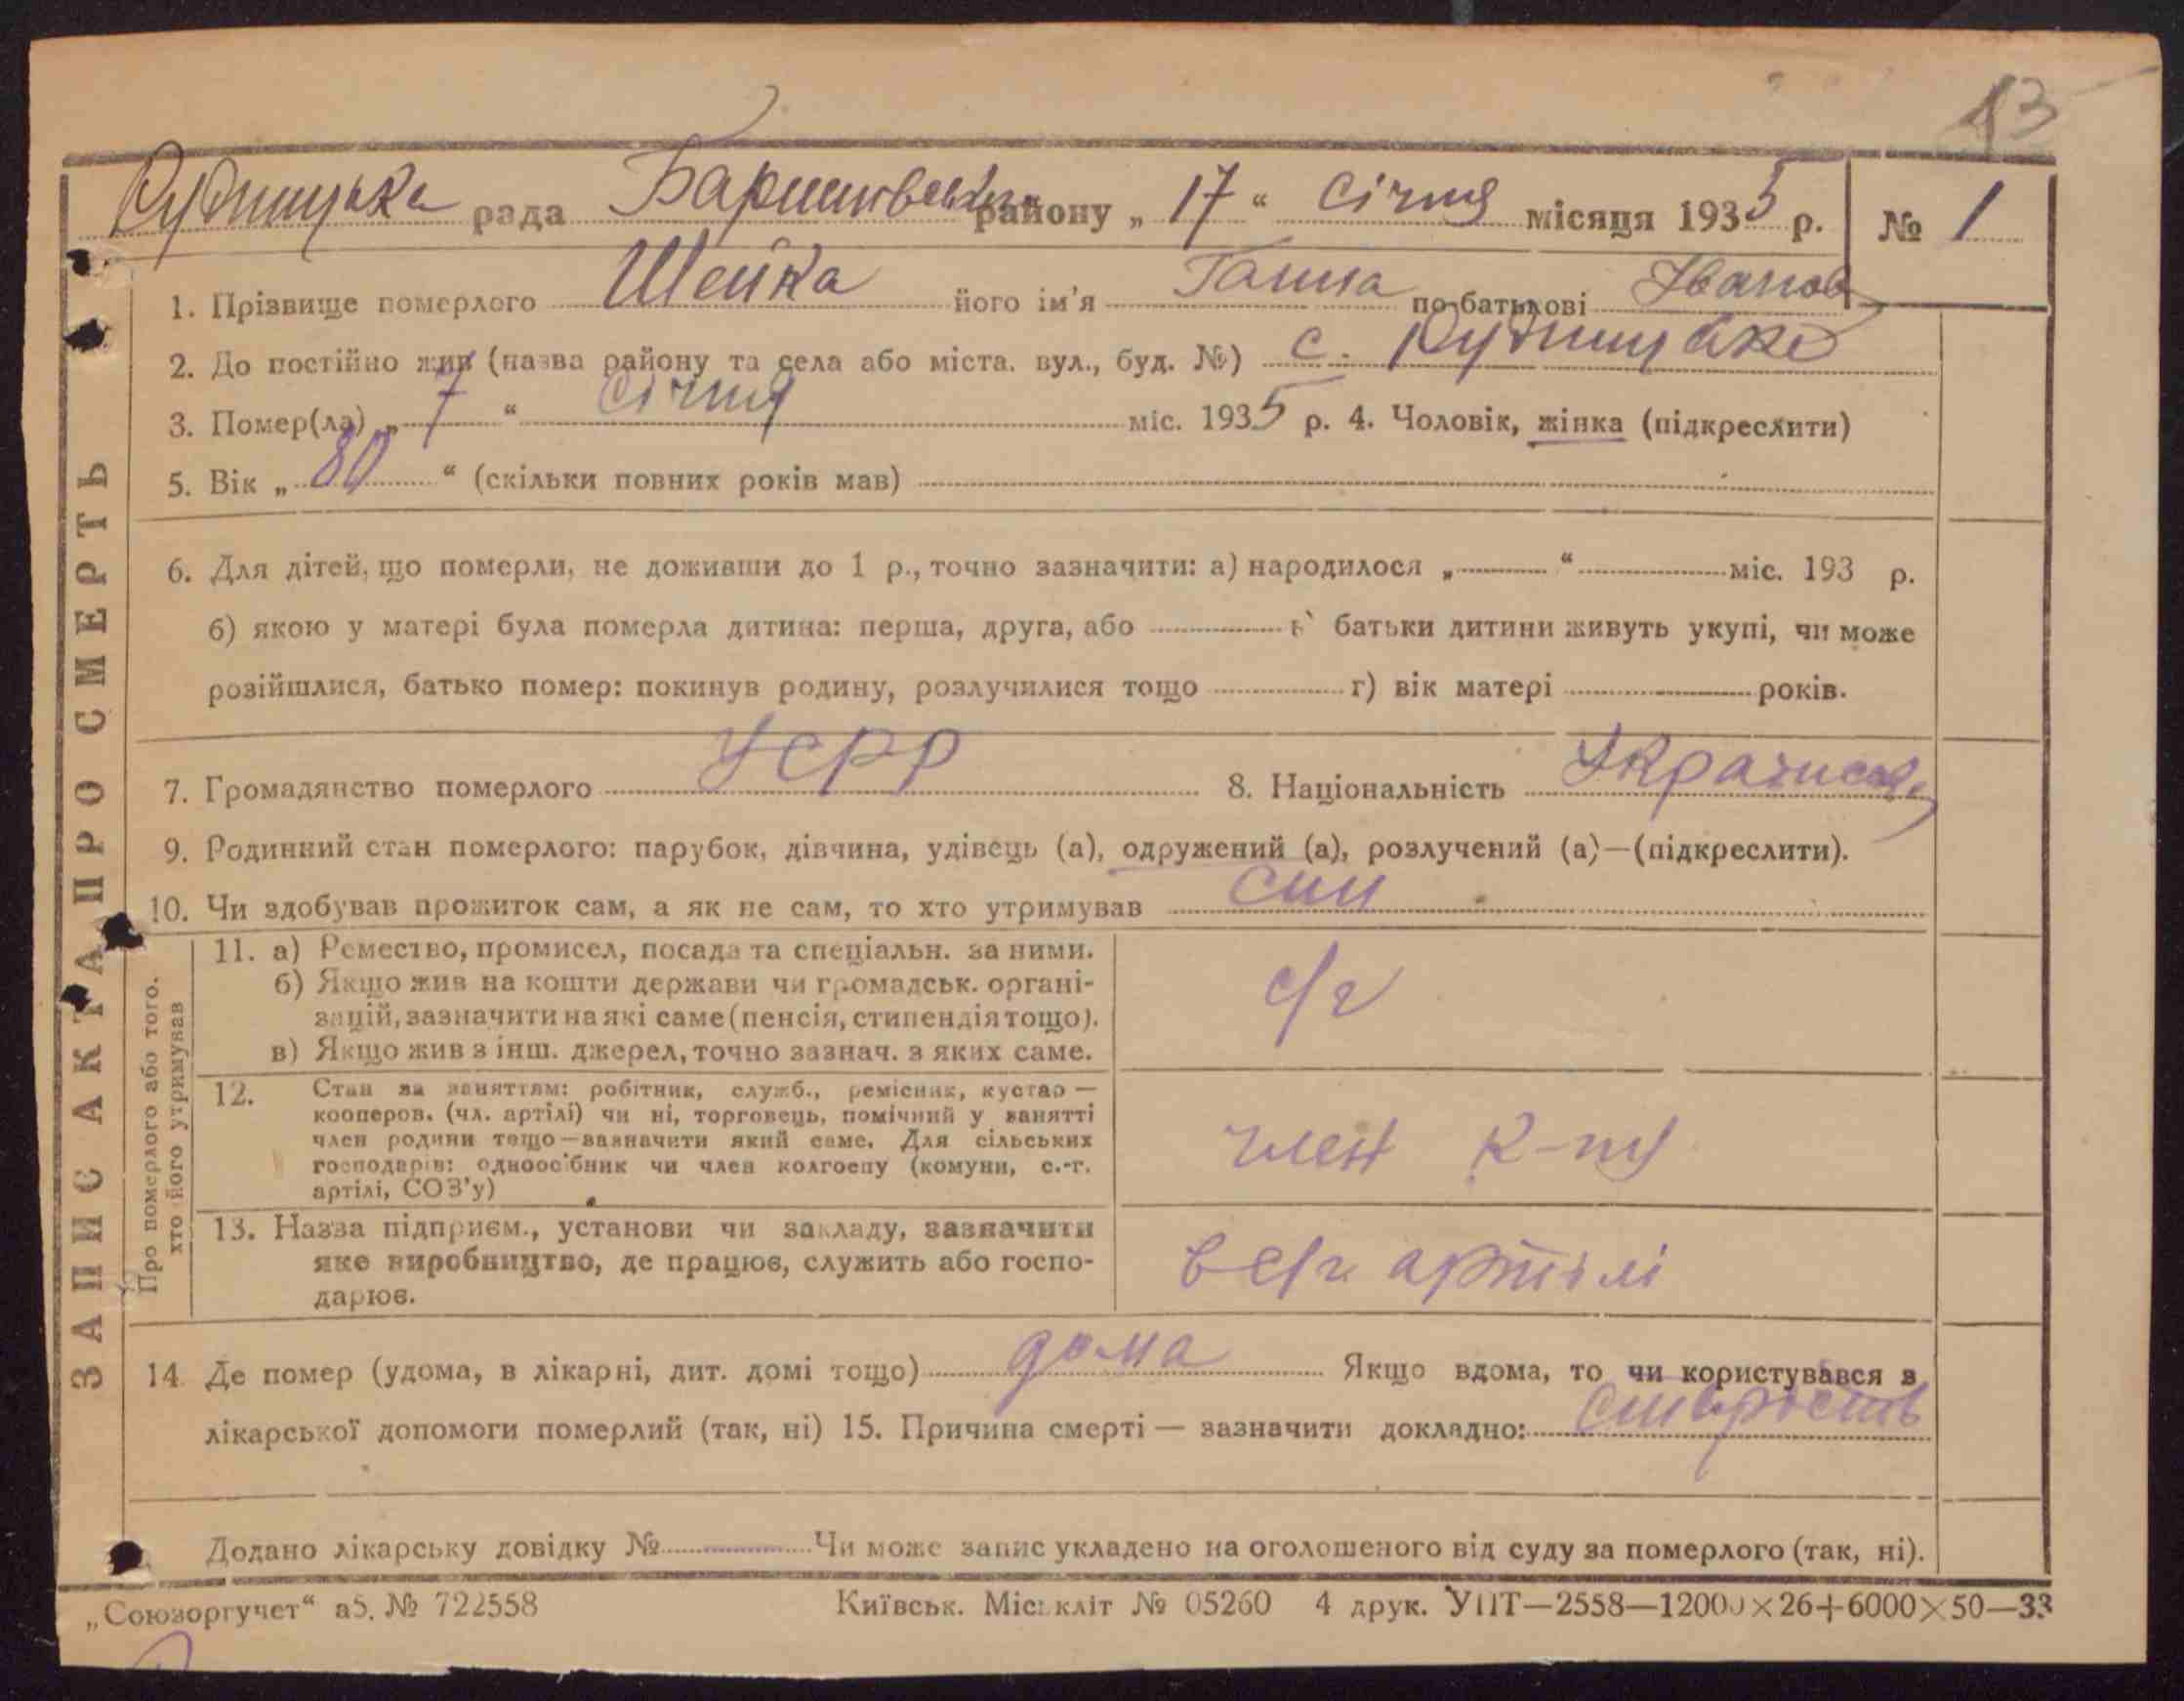 13
Рудницька рада Баришівськ. району „ 17 “ Січня місяця 1935 р. № 1
1. Прізвище померлого Шейка його ім'я Ганна по-батькові Іванов
2. До постійно жив (назва району та села або міста. вул., буд. №) с. Рудницьке
3. Помер(ла) „ 7 “ Січня міс. 1935 р. 4. Чоловік, жінка (підкреслити)
5. Вік „ 80 “ (скільки повних років мав)
6. Для дітей, що померли, не доживши до 1 р., точно зазначити: а) народилося „ “ міс. 193 р.
б) якою у матері була померла дитина: перша, друга, або батьки дитини живуть укупі, чи може
розійшлися, батько помер: покинув родину, розлучилися тощо г) вік матері років.
7. Громадянство померлого УСРР 8. Національність Українськ.
9. Родинний стан померлого: парубок, дівчина, удівець (а), одружений (а), розлучений (а)—(підкреслити).
10. Чи здобував прожиток сам, а як не сам, то хто утримував син
ЗАПИС АКТА ПРО СМЕРТЬ
Про померлого або того.
хто його утримував
11. а) Ремество, промисел, посада та спеціальн. за ними.
б) Якщо жив на кошти держави чи громадськ. органі-
зацій, зазначити на які саме (пенсія, стипендія тощо).
в) Якщо жив з інш. джерел, точно зазнач. з яких саме.
с/г
12. Стан за заняттям: робітник, служб., ремісник, кустар —
кооперов. (чл. артілі) чи ні, торговець, помічний у занятті
член родини тощо—зазначити який саме. Для сільських
господарів: одноосібник чи член колгоспу (комуни, с.-г.
артілі, СОЗ'у)
член к-пу
13. Назва підприєм., установи чи закладу, зазначити
яке виробництво, де працює, служить або госпо-
дарює.
в с/г артілі
14. Де помер (удома, в лікарні, дит. домі тощо) дома Якщо вдома, то чи користувався з
лікарської допомоги померлий (так, ні) 15. Причина смерті — зазначити докладно: старость
Додано лікарську довідку № Чи може запис укладено на оголошеного від суду за померлого (так, ні).
„Союзоргучет“ а5. № 722558 Київськ. Міськліт № 05260 4 друк. УПТ—2558—12000×26+6000×50—33